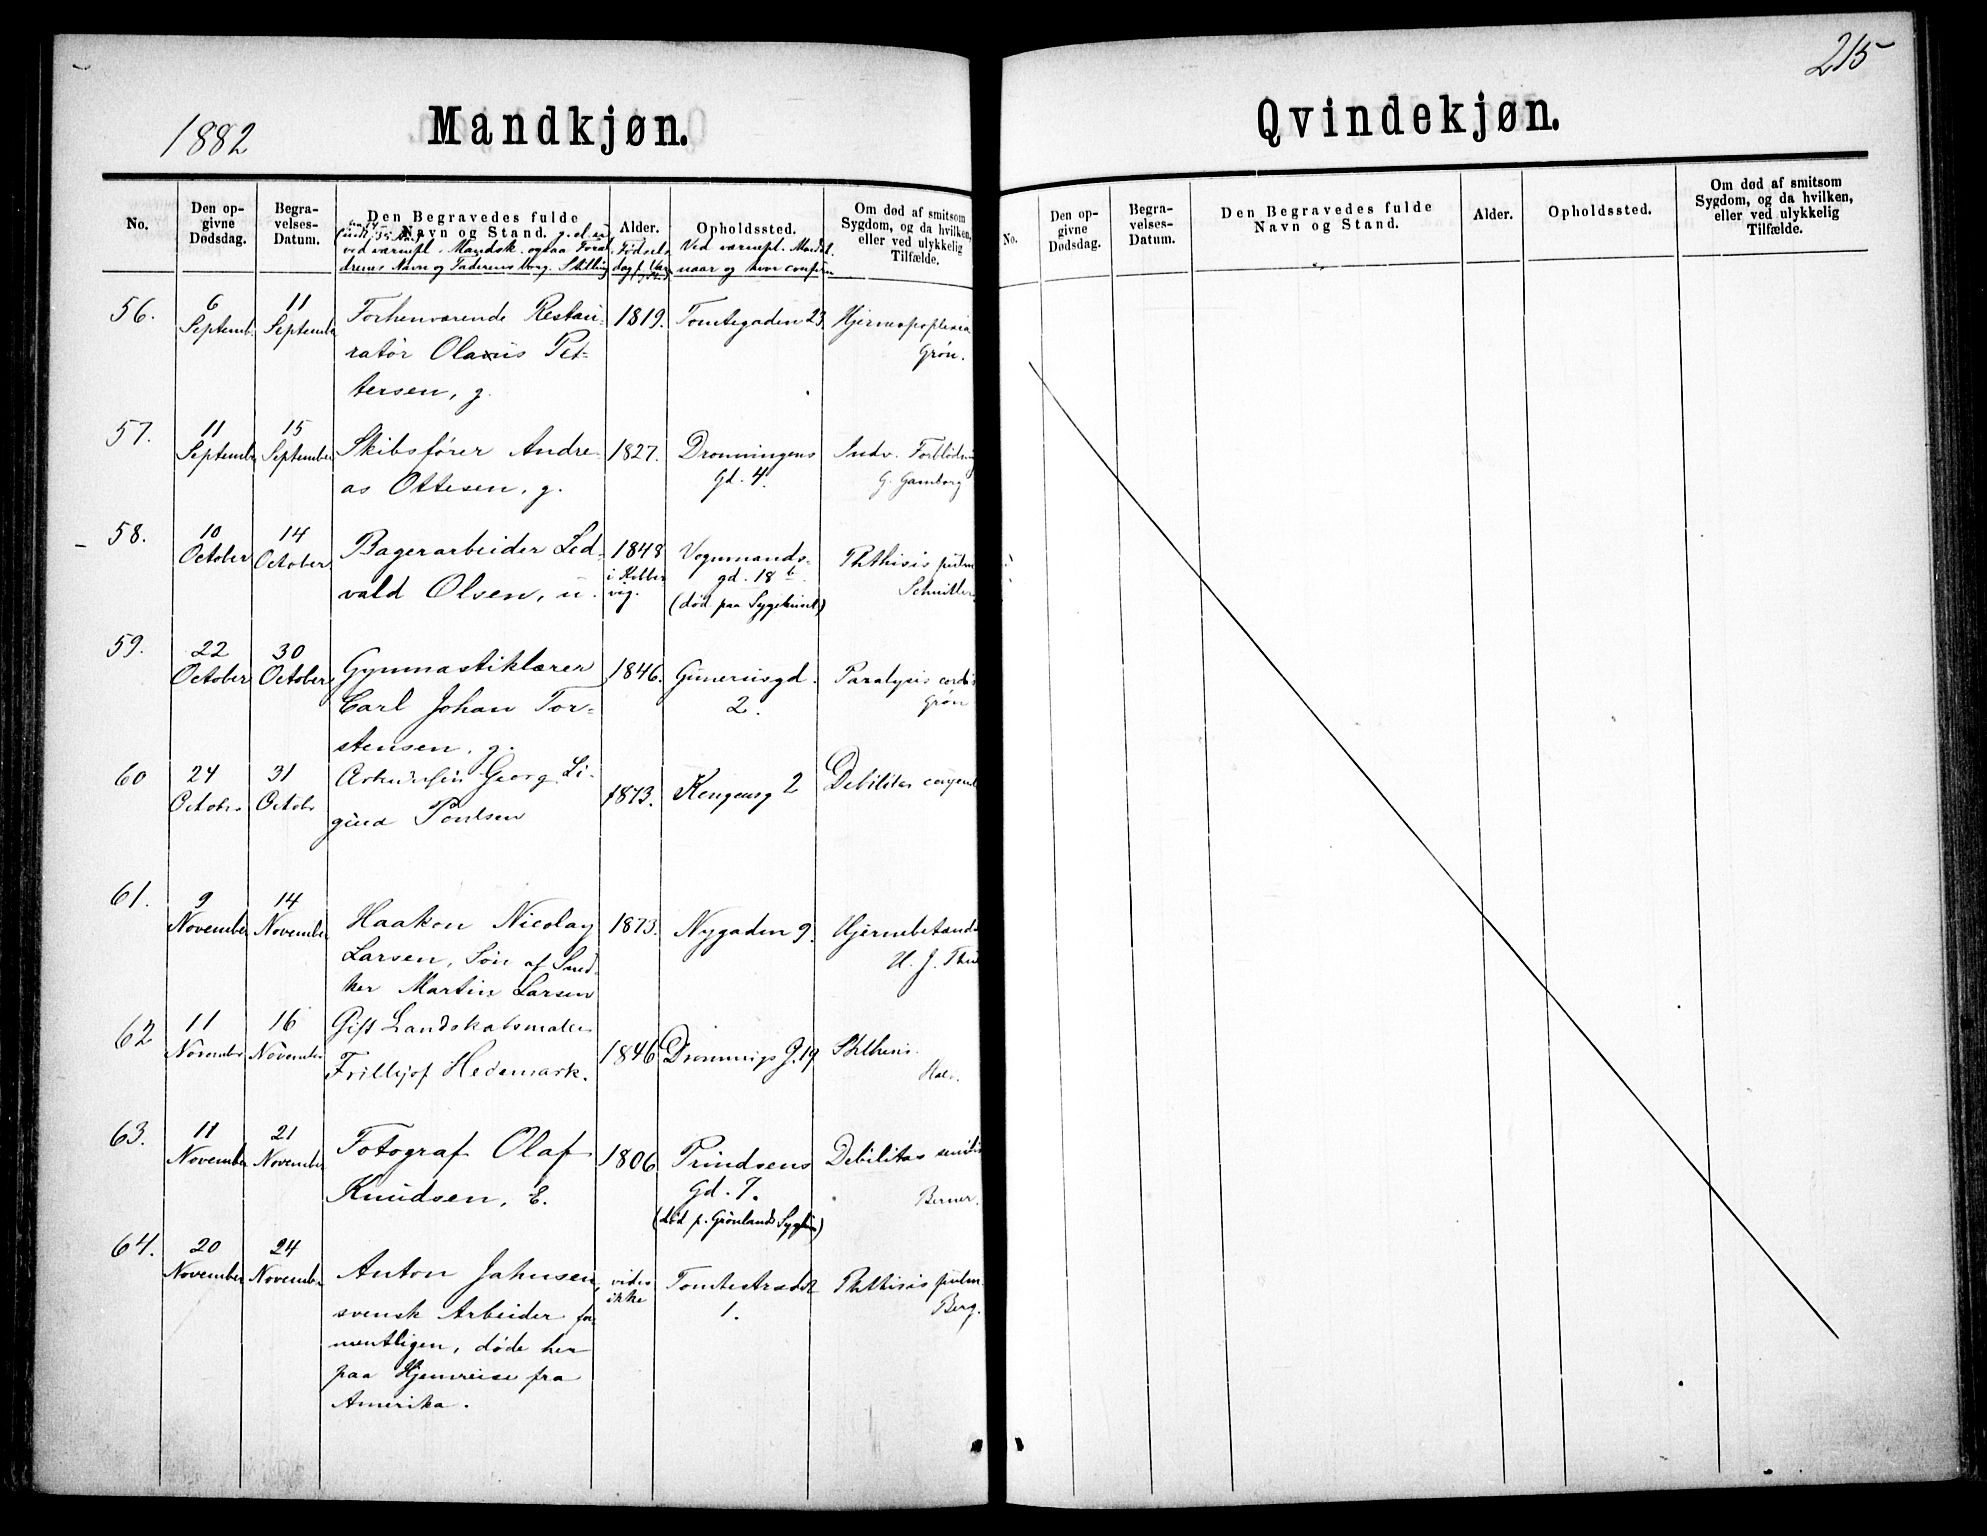 215
1882
Mandkjøn.
No.
Den op-
givne
Dødsdag.
Begra-
velses-
Datum.
Den Begravedes fulde
Navn og Stand.
Alder.
Opholdssted.
Om død af smitsom
Sygdom, og da hvilken,
eller ved ulykkelig
Tilfælde.
56.
6
Septemb.
11
Septembr
Forhenværende Restau-
ratør Olaus Pet-
tersen, g.
1819.
Tomtegaden 23.
Hjerneapoplexia
Grøn.
57.
11
Septembr
15
September
Skibsfører Andre-
as Ottesen, g.
1827.
Dronningens
Gd. 4.
Indv. Forblødning
G. Gamborg
58.
10
October
14
October
Bagerarbeider Led-
vald Olsen, u.
1848
i
vig.
Vognmands-
gd. 18 b.
(død paa Sygehuset)
Phthisis pulm
59.
22
October
30
October
Gymnastiklærer
Carl Johan Tor-
stensen, g.
1846.
Gunerusgd.
2.
Paralysis cordis
Grøn
60
24
Octobr
31
Octobr
Georg
Poulsen
1873.
2
Debilitas congenit
61.
9
November
14
November
Haakon Nicolay
Larsen, Søn af Sned-
ker Martin Larsen
1873.
Nygaden 9.
Hjernebetænd
62
11
Novembr
16
November
Gift Landskabsmaler
Frithjof Hedemark.
1846
19
Phthisis.
63.
11
November
21
November
Fotograf Olaf
Knudsen, E.
1806
Prindsens
Gd. 7.
(død p. Grønlands Sygehus)
Debilitas senilis
Berner.
64.
20
November
24
November
Anton Jahnsen,
svensk Arbeider for-
mentligen, døde her
paa Hjemreise fra
Amerika.
vides
ikke
Tomtestrædet
1.
Phthisis pulm.
Berg.
Qvindekjøn.
No.
Den op-
givne
Dødsdag.
Begra-
velses-
Datum.
Den Begravedes fulde
Navn og Stand.
Alder.
Opholdssted.
Om død af smitsom
Sygdom, og da hvilken,
eller ved ulykkelig
Tilfælde.